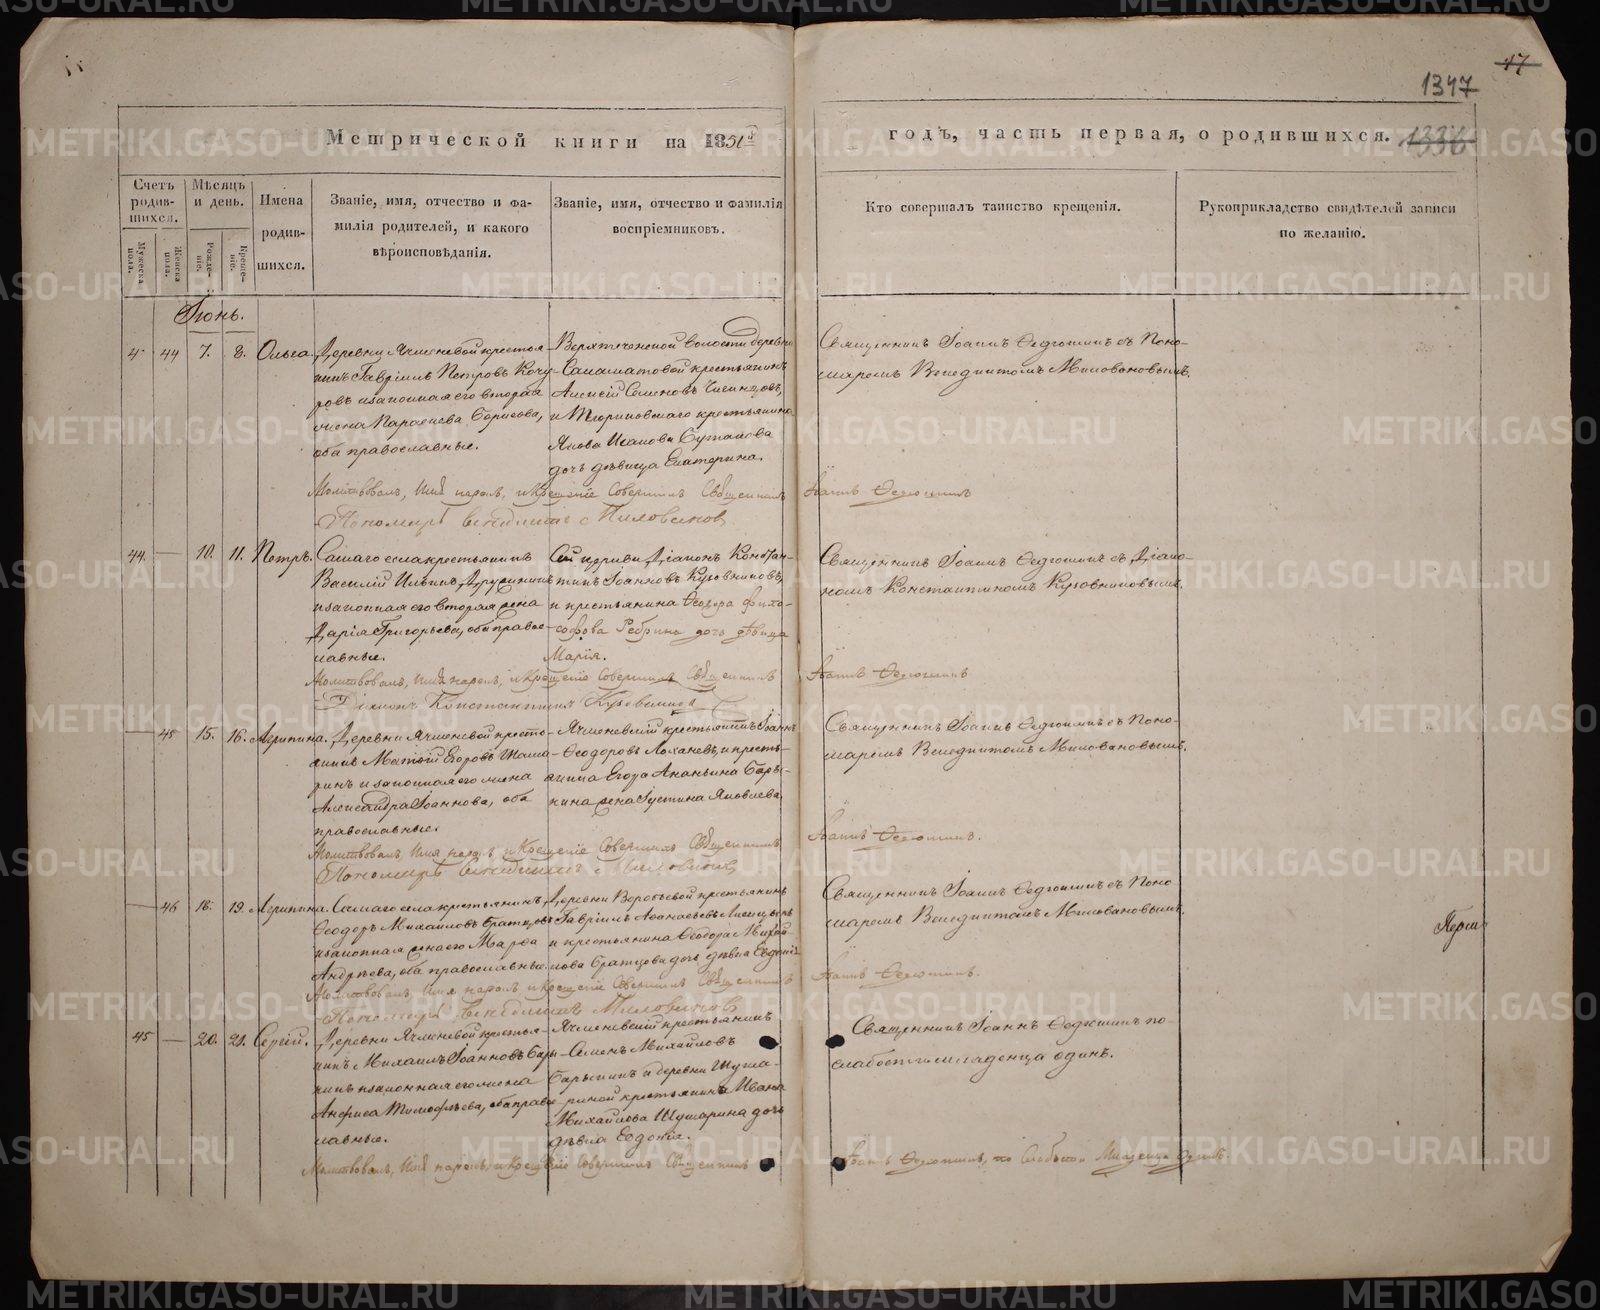 17
1347
1336
Метрической книги на 1851й
годъ, часть первая, о родившихся.
Счетъ родив-шихся.
Мужеска пола.
Женска пола.
Мѣсяцъ и день.
Рожде-ніе.
Креще-ніе.
Имена
родив-
шихся.
Званіе, имя, отчество и фа-
милія родителей, и какого
вѣроисповѣданія.
Званіе, имя, отчество и фамилія
воспріемниковъ.
Кто совершалъ таинство крещенія.
Рукоприкладство свидѣтелей записи
по желанію.
Іюнь.
44 7. 8. Ольга.
Деревни Ячменевой крестья-
нинъ Гавріилъ Петровъ Кочу-
ровъ и законная его вторая
жена Параскева Борисова,
оба православные.
Верхтеченской волости деревни
крестьянинъ
Алексій Семеновъ
и крестьянина
Якова Исакова
дочь дѣвица Екатерина.
Священникъ Іоаннъ Ѳедюшинъ съ Поно-
маремъ Венедиктомъ Миловановымъ.
Молитвовалъ, Имя нарекъ, и Крещеніе совершилъ Священникъ Іоаннъ Ѳедюшинъ
Пономарь Венедиктъ Миловановъ
44. — 10. 11. Петръ.
Самаго села крестьянинъ
Василій Ильинъ Дружининъ
и законная его вторая жена
Дарія Григорьева, оба право-
славные.
Сей церкви Діаконъ Констан-
тинъ Іоанновъ Кузовниковъ,
и крестьянина Ѳеодора Фило-
софова Ребрина дочь дѣвица
Марія.
Священникъ Іоаннъ Ѳедюшинъ съ Діако-
номъ Константиномъ Кузовниковымъ.
Молитвовалъ, Имя нарекъ, и Крещеніе совершилъ Священникъ Іоаннъ Ѳедюшинъ
Діаконъ Константинъ Кузовниковъ
— 45 15. 16. Агрипина.
Деревни Ячменевой кресть-
янинъ Матѳій Егоровъ
и законная его жена
Александра Іоаннова, оба
православные.
Ячменевскій крестьянинъ Іоаннъ
Ѳеодоровъ и кресть-
янина Егора Ананьина Бары-
кина жена Іустина Яковлева.
Священникъ Іоаннъ Ѳедюшинъ съ Поно-
маремъ Венедиктомъ Миловановымъ.
Молитвовалъ, Имя нарекъ, и Крещеніе совершилъ Священникъ Іоаннъ Ѳедюшинъ.
Пономарь Венедиктъ Миловановъ
— 46 18. 19. Агрипина.
Самаго села крестьянинъ
Ѳеодоръ Михайловъ Братцовъ
и законная жена его Марѳа
Андрѣева, оба православные.
Деревни Воробьевой крестьянинъ
Гавріилъ Аѳанасьевъ
и крестьянина Ѳеодора Михай-
лова Братцова дочь дѣвица Евдокія
Священникъ Іоаннъ Ѳедюшинъ съ Поно-
маремъ Венедиктомъ Миловановымъ.
Молитвовалъ, Имя нарекъ, и Крещеніе совершилъ Священникъ Іоаннъ Ѳедюшинъ.
Пономарь Венедиктъ Миловановъ
45 — 20. 21. Сергій.
Деревни Ячменевой крестья-
нинъ Михаилъ Іоанновъ Бары-
кинъ и законная его жена
Анфиса Тимоѳѣева, оба право-
славные.
Ячменевскій крестьянинъ
Семенъ Михайловъ
Барыкинъ и деревни Шума-
риной крестьянина Ивана
Михайлова Шумарина дочь
дѣвица Евдокія.
Священникъ Іоаннъ Ѳедюшинъ по
слабости младенца одинъ.
Молитвовалъ, Имя нарекъ, и Крещеніе совершилъ Священникъ Іоаннъ Ѳедюшинъ, по слабости младенца одинъ.
METRIKI.GASO-URAL.RU